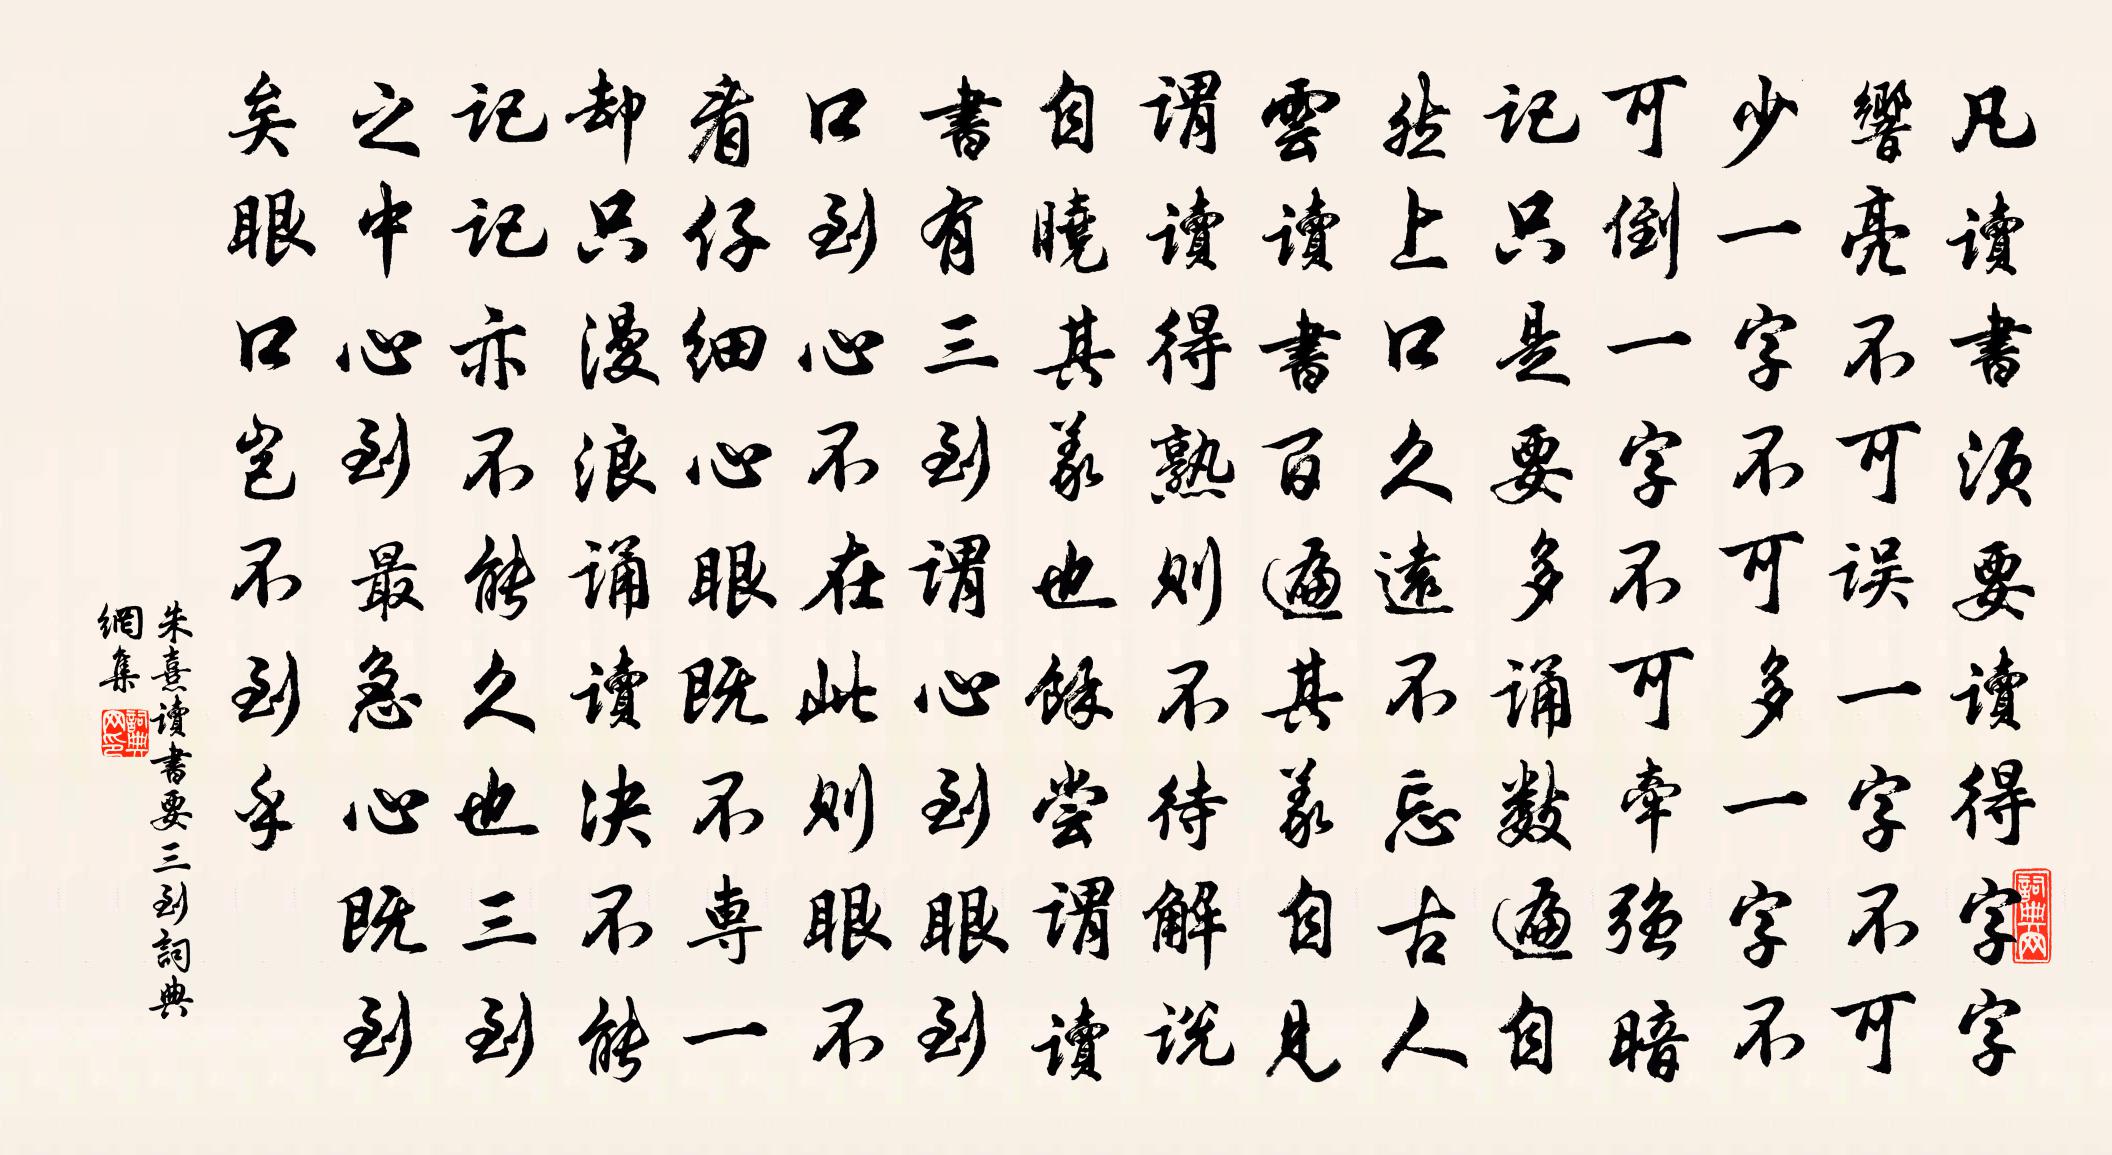 凡讀書須要讀得字字
響亮不可誤一字不可
少一字不可多一字不
可倒一字不可牽强暗
記只是要多誦數遍自
然上口久遠不忘古人
雲讀書百遍其義自見
謂讀得熟則不待解説
自曉其義也餘嘗謂讀
書有三到謂心到眼到
口到心不在此則眼不
看仔細心眼既不專一
却只漫浪誦讀決不能
記記亦不能久也三到
之中心到最急心既到
矣眼口豈不到乎
朱熹讀書要三到詞典
網集
詞典网
詞典网印